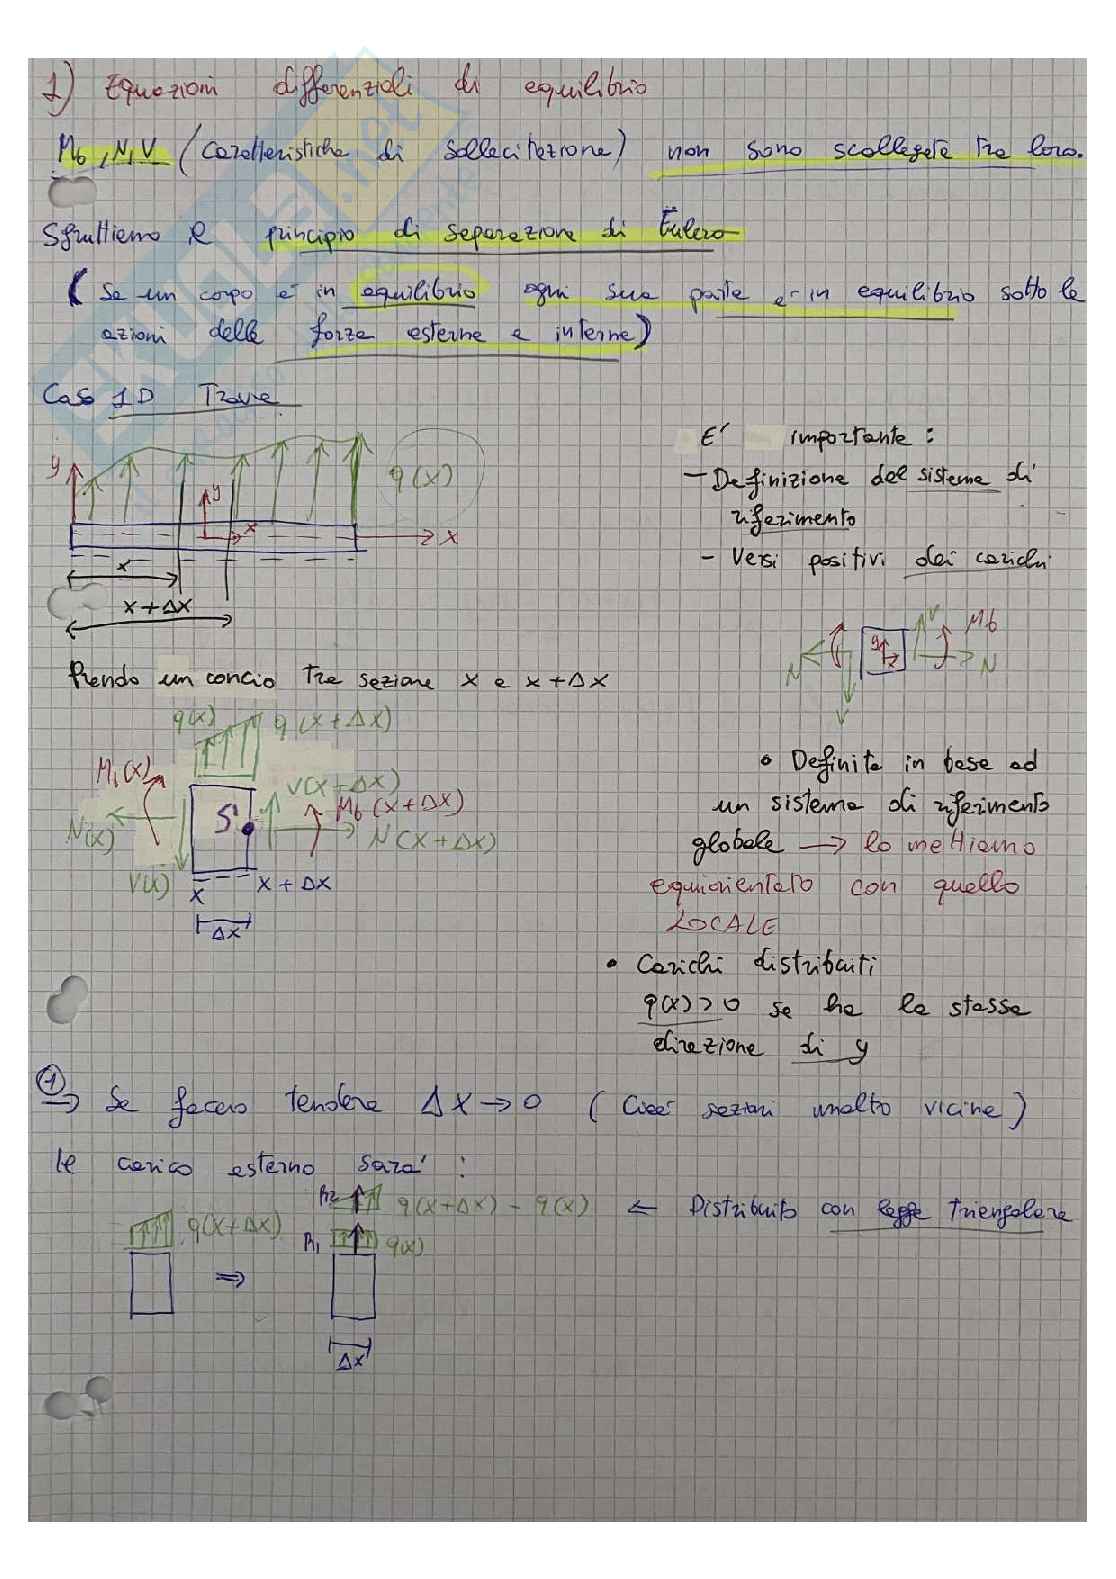 1) Equazioni differenziali di equilibrio
Mb, N, V (Caratteristiche di sollecitazione) non sono scollegate tra loro.
Sfruttiamo il principio di separazione di Eulero
(Se un corpo è in equilibrio ogni sua parte è in equilibrio sotto le
azioni delle forze esterne e interne)
Caso 1D Trave
y
q(x)
y
x
x
x
x+Δx
E' importante:
- Definizione del sistema di
riferimento
- Versi positivi dei carichi
V
Mb
N
N
V
Prendo un concio tra sezione x e x+Δx
q(x)
q(x+Δx)
V(x+Δx)
Mb(x+Δx)
N(x)
S
N(x+Δx)
V(x)
x
x+Δx
Δx
• Definite in base ad
un sistema di riferimento
globale → lo mettiamo
equiorientato con quello
LOCALE
• Carichi distribuiti
q(x)>0 se ha la stessa
direzione di y
① ⇒ Se faccio tendere Δx→0 (Cioè sezioni molto vicine)
le carico esterno sarà:
q(x+Δx)
⇒
R2
q(x+Δx) - q(x) ← Distribuito con legge triangolare
R1
q(x)
Δx